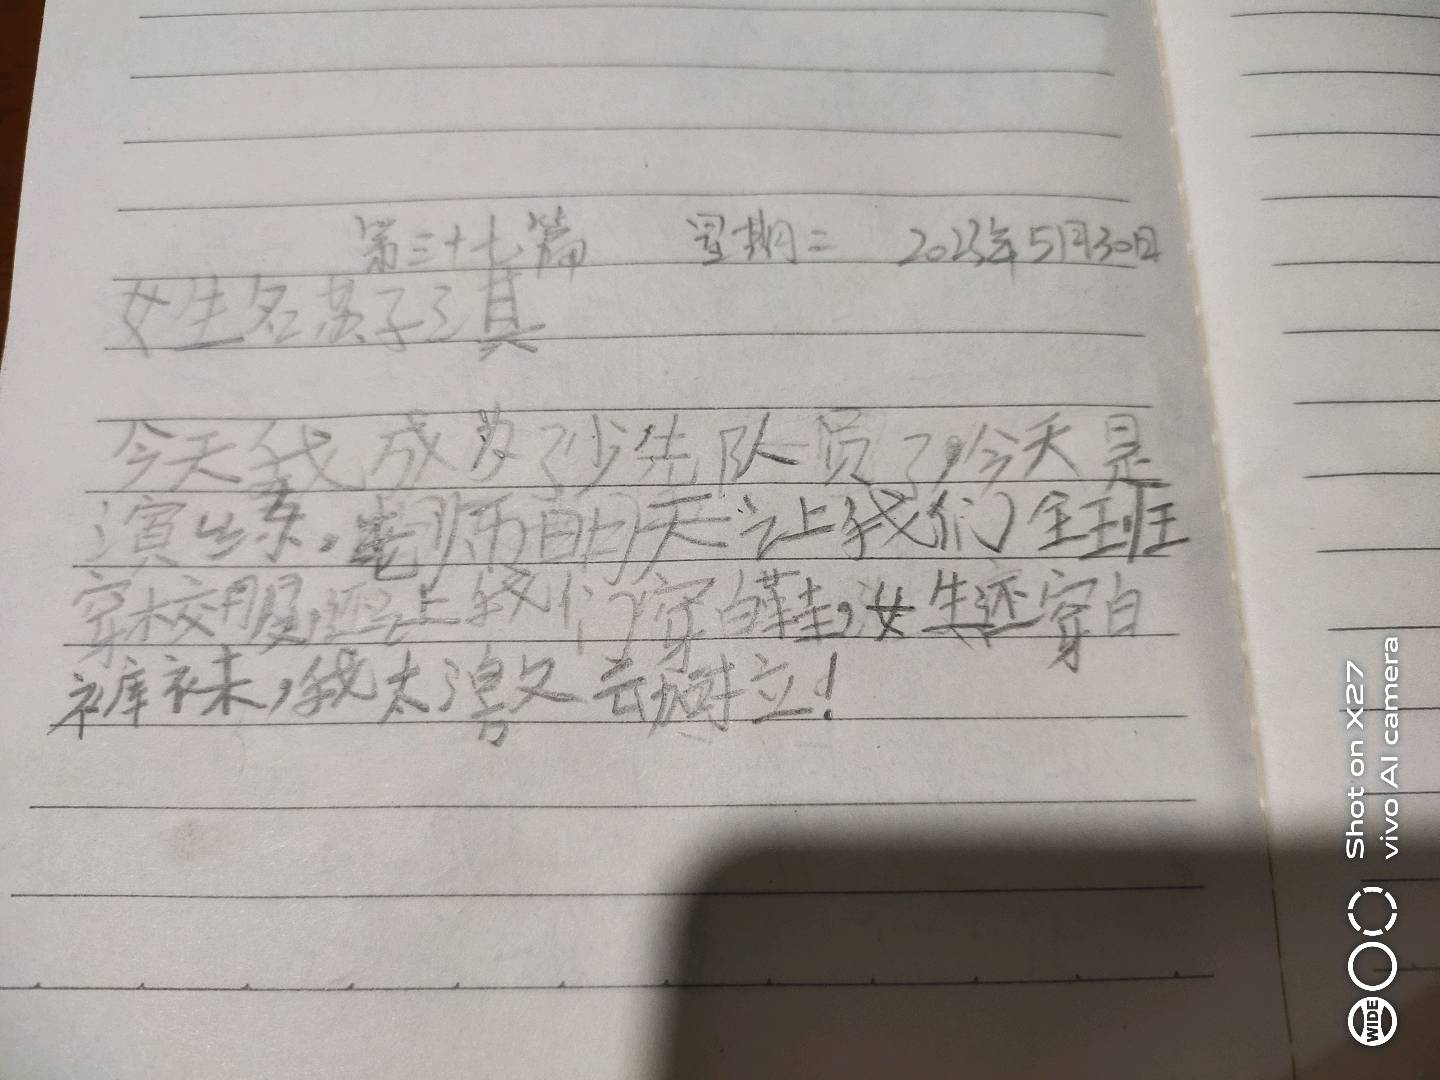 第三十七篇 星期二 2023年5月30日
女生名
今天我成为了少先队员了,今天是
演练,老师明天让我们全班
穿校服,还让我们穿白鞋,女生还穿白
裤袜,我太
立!
Shot on X27
vivo AI camera
WIDE